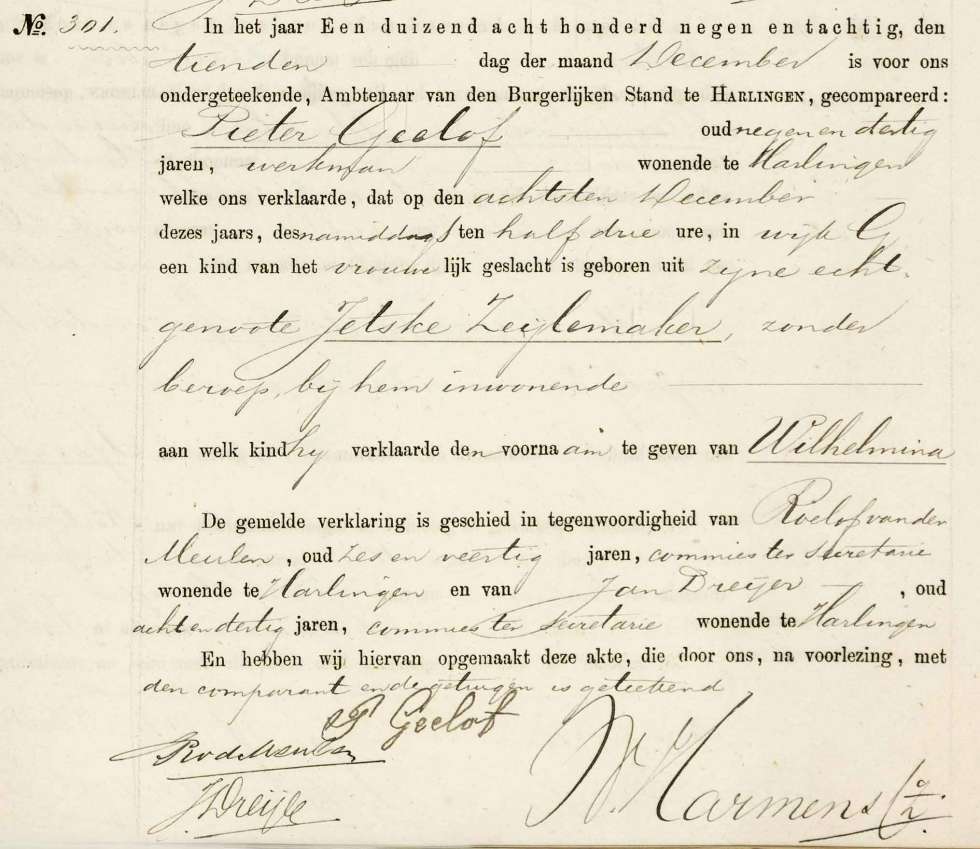 No. 301. In het jaar Een duizend acht honderd negen en tachtig, den
tienden dag der maand December is voor ons
ondergeteekende, Ambtenaar van den Burgerlijken Stand te HARLINGEN, gecompareerd:
Pieter Geelof oud negen en dertig
jaren, werkman wonende te Harlingen
welke ons verklaarde, dat op den achtsten December
dezes jaars, des namiddags ten half drie ure, in wijk G
een kind van het vrouwelijk geslacht is geboren uit zijne echt-
genoote Jetske Zeijlemaker, zonder
beroep, bij hem inwonende
aan welk kind hij verklaarde den voornaam te geven van Wilhelmina
De gemelde verklaring is geschied in tegenwoordigheid van Roelof van der
Meulen, oud zes en veertig jaren, commies ter secretarie
wonende te Harlingen en van Jan Dreijer, oud
acht en dertig jaren, commies ter secretarie wonende te Harlingen
En hebben wij hiervan opgemaakt deze akte, die door ons, na voorlezing, met
den comparant en de getuigen is geteekend
P Geelof
RvdMeulen
J Dreijer
Harmens